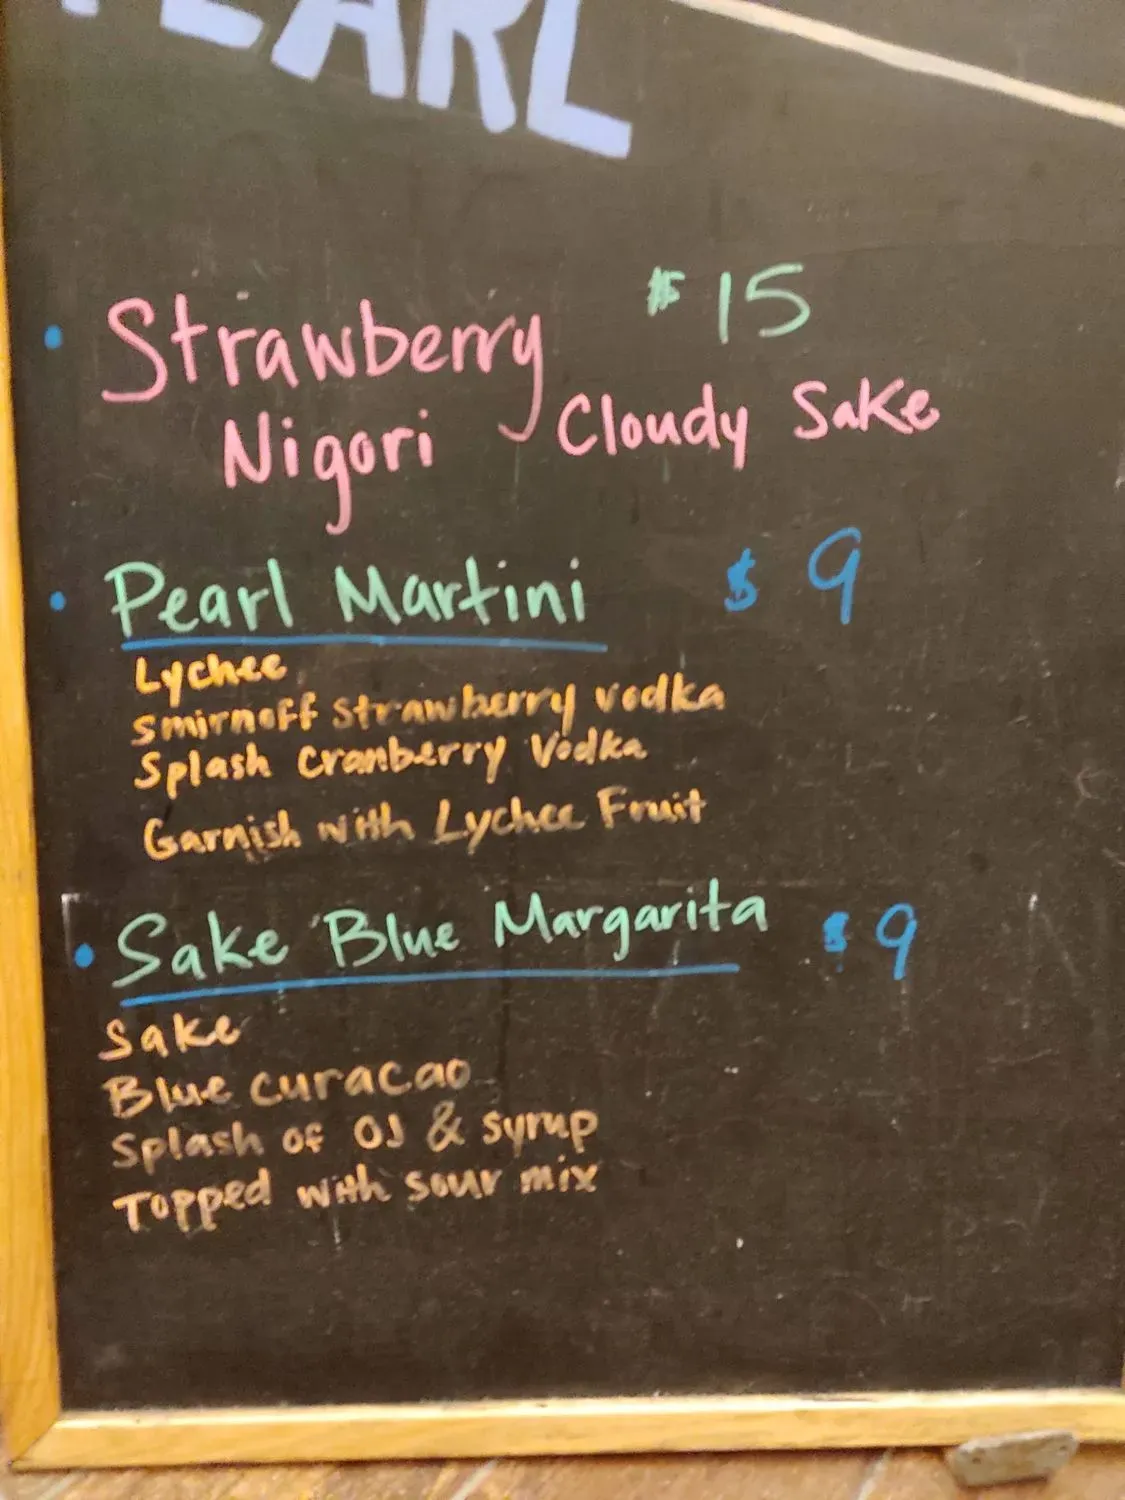 PEARL
• Strawberry $15
Nigori Cloudy Sake
• Pearl Martini $9
Lychee
smirnoff strawberry vodka
Splash Cranberry Vodka
Garnish with Lychee Fruit
• Sake Blue Margarita $9
Sake
Blue curacao
Splash of OJ & syrup
Topped with sour mix